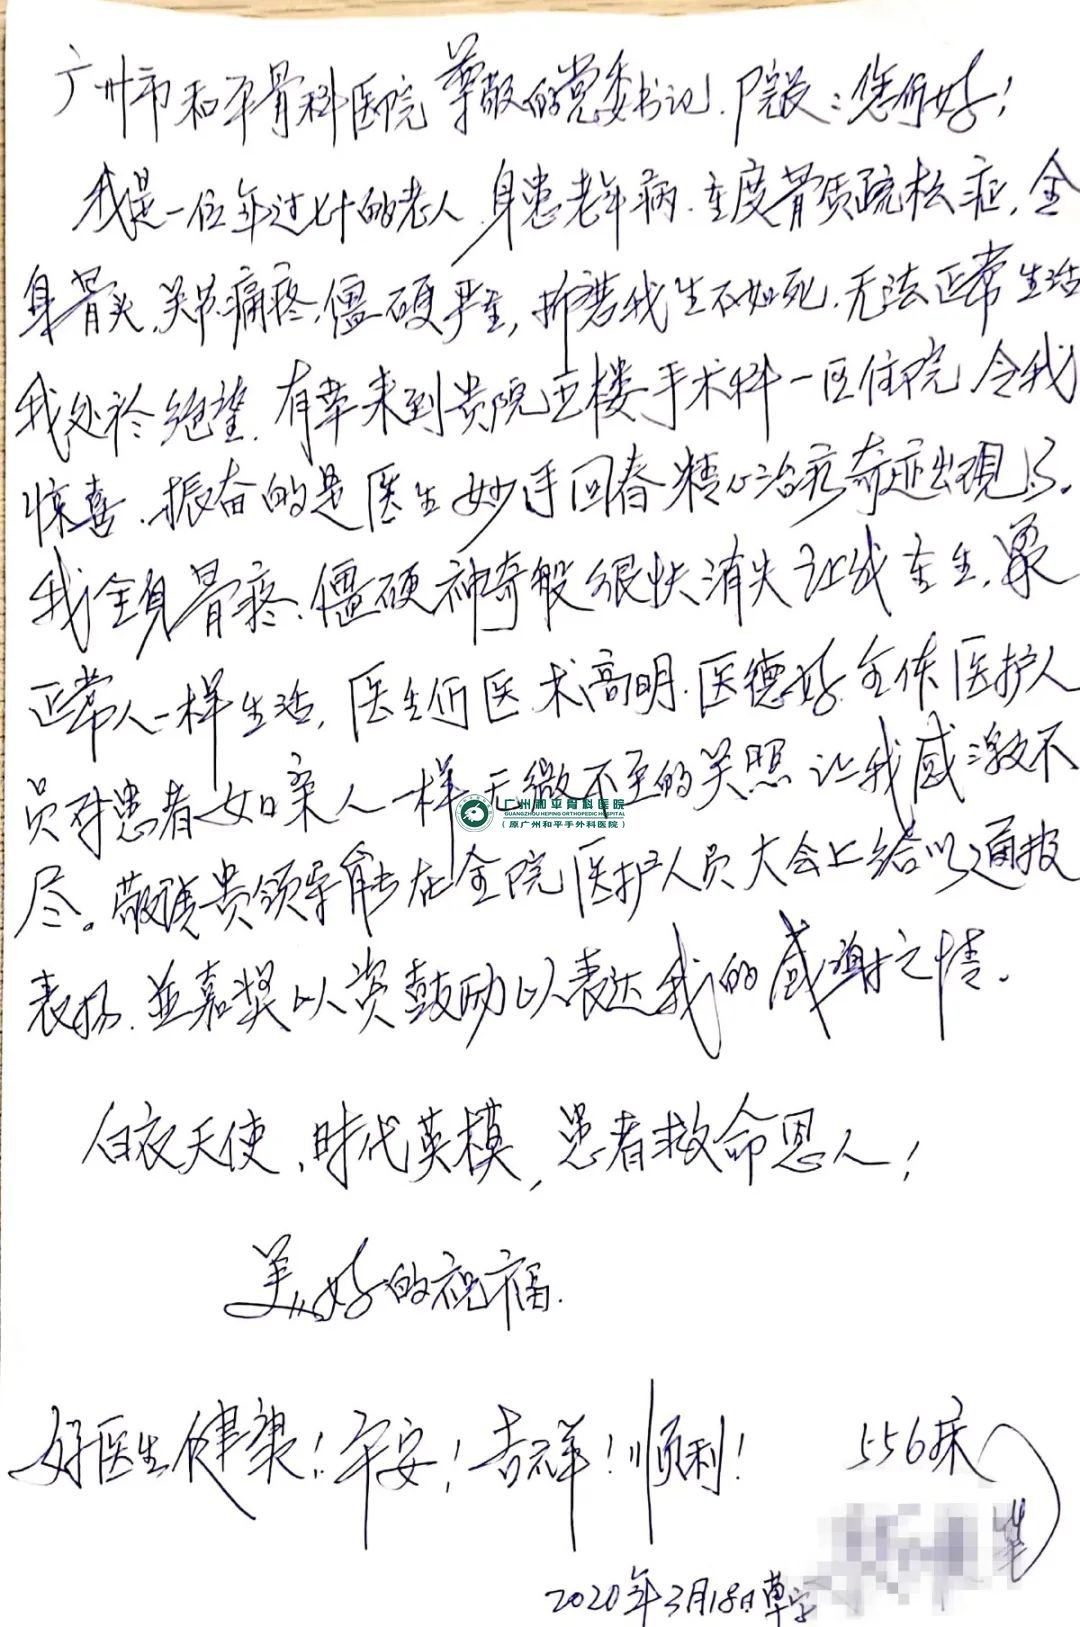 广州市和平骨科医院尊敬的党委书记、院长：您们好！
我是一位年过七十的老人，身患老年病、重度骨质疏松症，全
身骨头、关节痛疼、僵硬严重，折磨我生不如死，无法正常生活
我处於绝望，有幸来到贵院五楼手术科一区住院，令我
惊喜、振奋的是医生妙手回春精心治疗奇迹出現了。
我全身骨疼、僵硬神奇般很快消失让我重生，象
正常人一样生活，医生们医术高明、医德好，全体医护人
员对患者如亲人一样无微不至的关照让我感激不
广州和平骨科医院
GUANGZHOU HEPING ORTHOPEDIC HOSPITAL
（原广州和平手外科医院）
尽。敬请贵领导能在全院医护人员大会上给以通报
表扬、並嘉奖以资鼓励以表达我的感谢之情。
白衣天使，时代英模，患者救命恩人！
美好的祝福.
好医生健康！平安！吉祥！顺利！
556床
笔
2020年3月18日草字